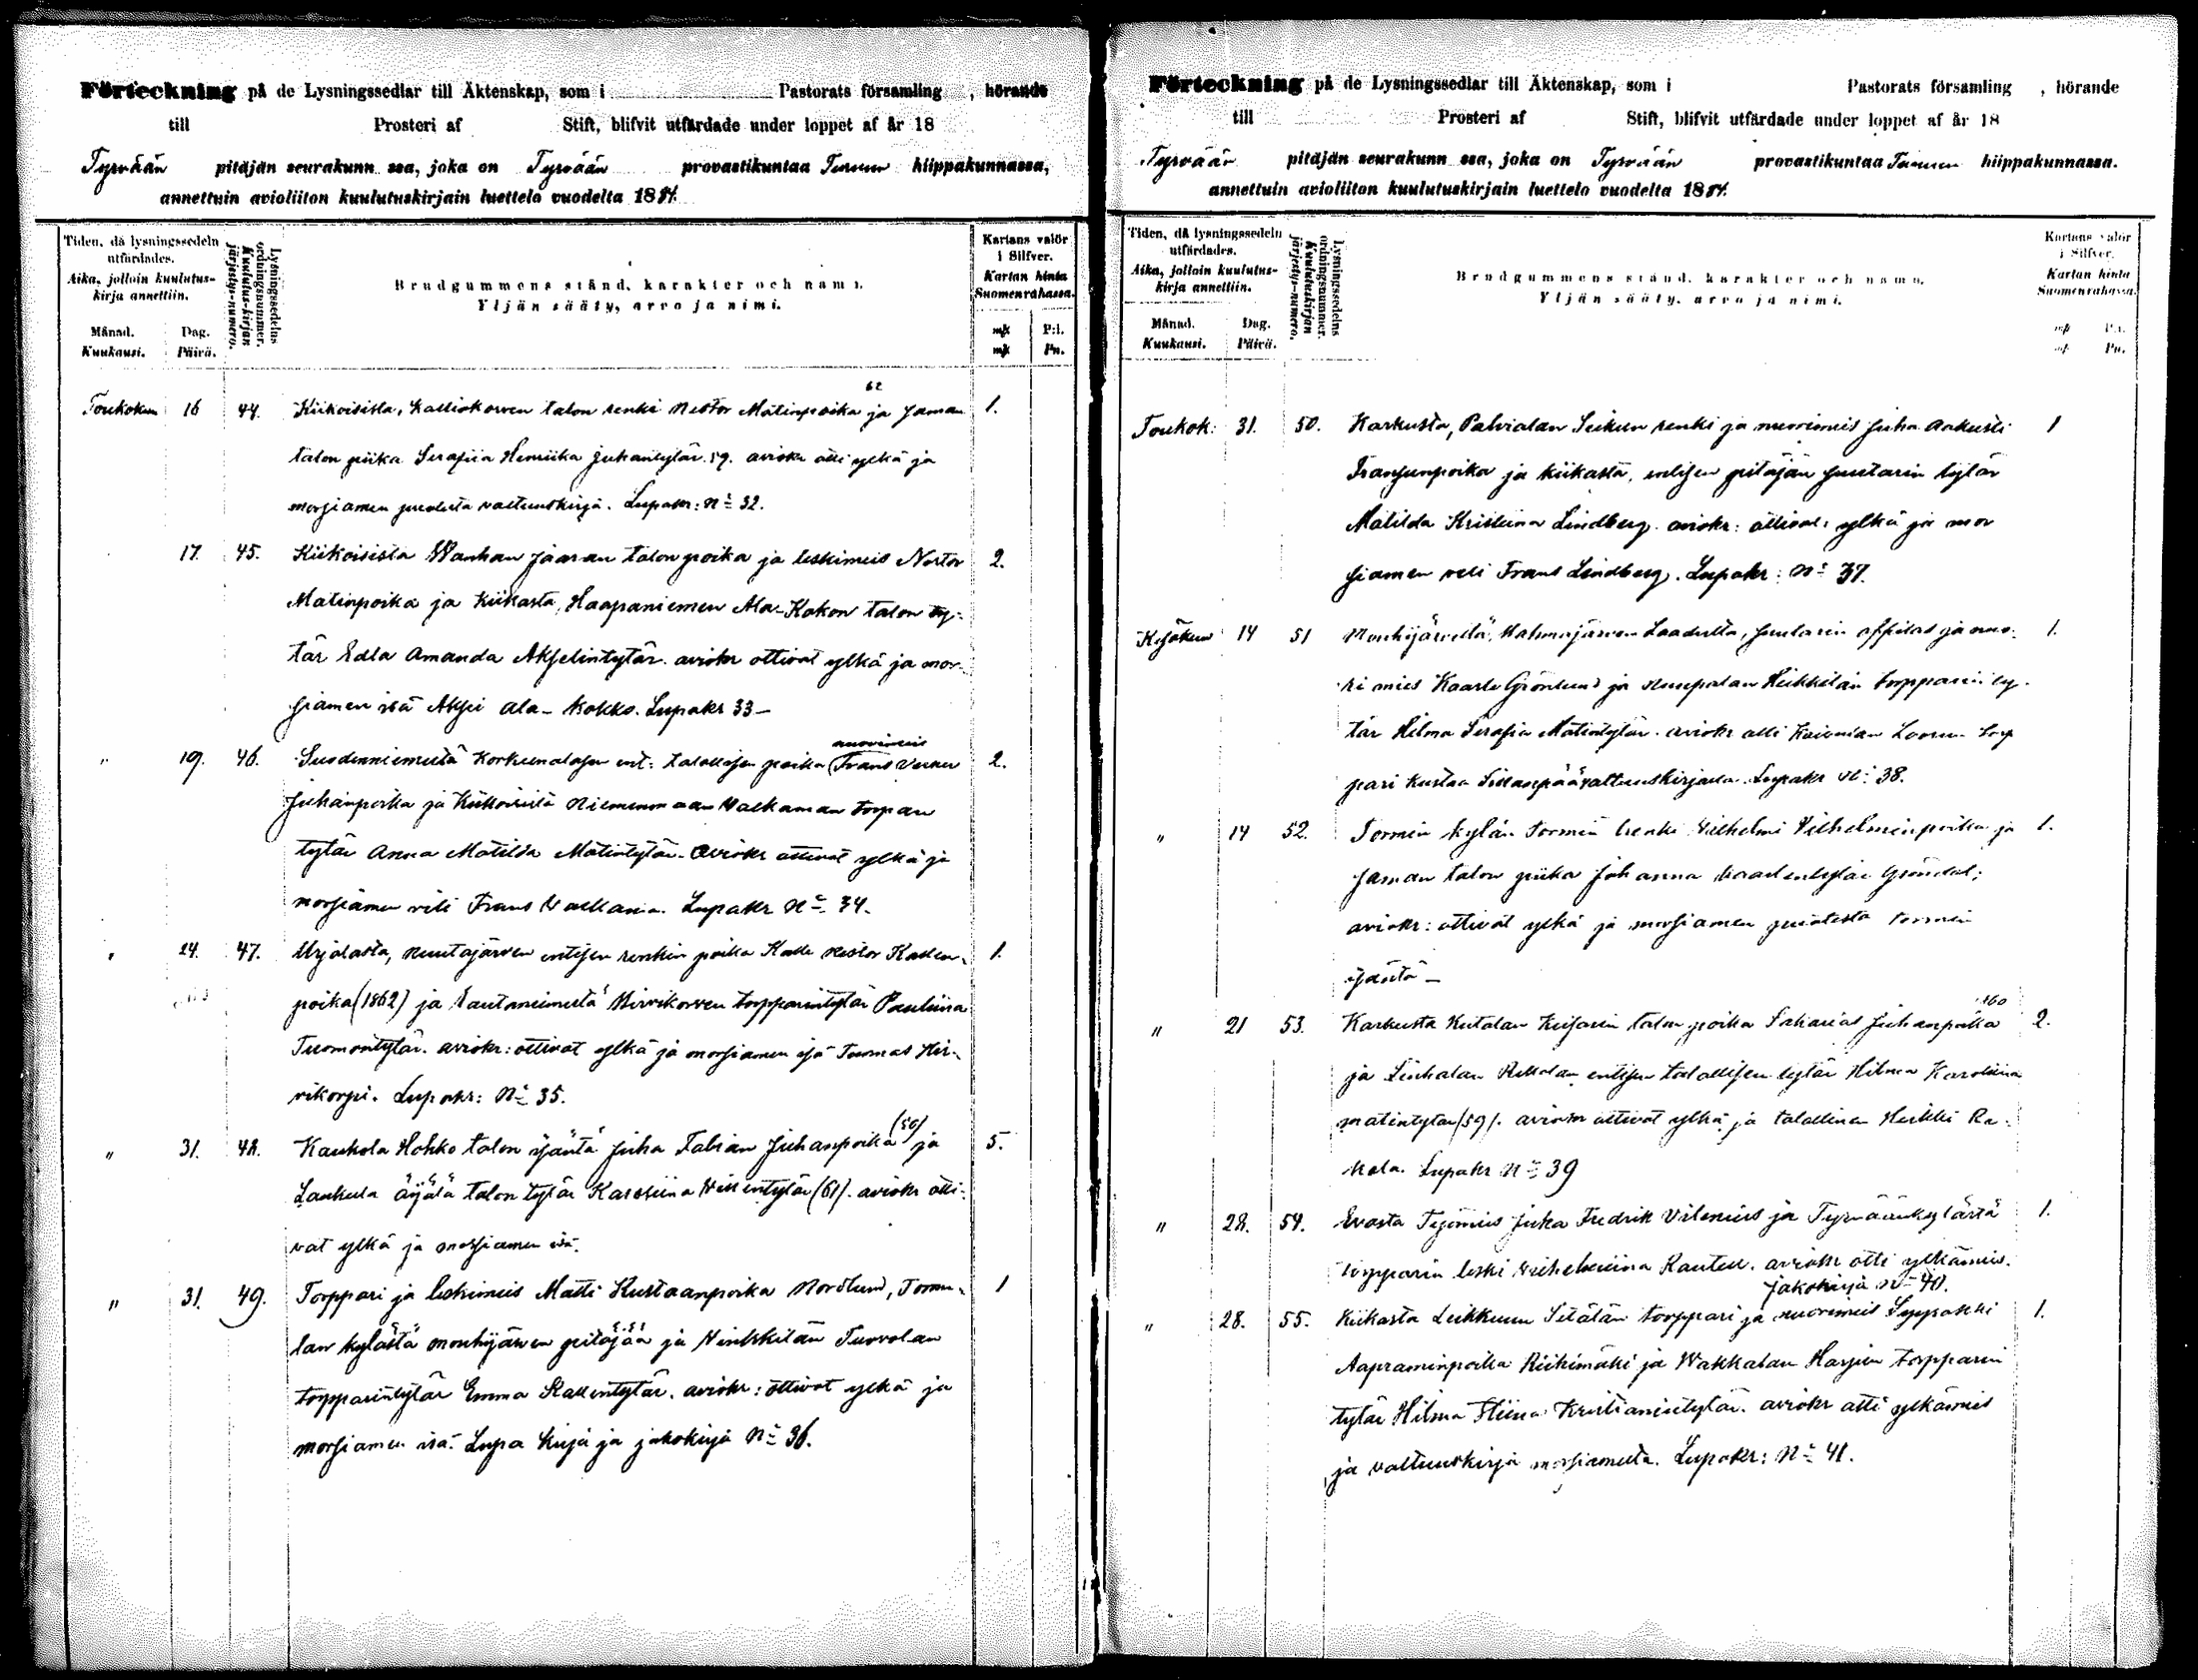 Förteckning på de Lysningssedlar till Äktenskap, som i Pastorats församling , hörande
till Prosteri af Stift, blifvit utfärdade under loppet af år 18
Tyrvään pitäjän seurakunn ssa, joka on Tyrvään provastikuntaa Turun hiippakunnassa,
annettuin avioliiton kuulutuskirjain luettelo vuodelta 1884.
Tiden, då lysningssedeln utfärdades.
Aika, jolloin kuulutus-kirja annettiin.
Månad. Kuukausi.
Dag. Päivä.
Lysningssedelns ordningsnummer.
Kuulutus-kirjan järjestys-numero.
Brudgummens stånd, karakter och namn.
Yljän sääty, arvo ja nimi.
Kartans valör i Silfver.
Kartan hinta Suomenrahassa.
mk P:i.
mk Pn.
62
Toukokuu 16 44. Kiikoisista, Kalliokorven talon renki Nestor Matinpoika ja Jaman 1.
talon piika Serafiia Henriika Juhantytär. 59. aviokr otti ylkä ja
morsiamen puolesta valtuuskirja. Lupakr: No 32.
17. 45. Kiikoisista Wanhan Jaaran talon poika ja leskimies Nestor 2.
Matinpoika ja Kiikasta, Haapaniemen Ala-Kokon talon ty-
tär Edla Amanda Akselintytär. aviokr ottivat ylkä ja mor-
siamen isä Aksei Ala-Kokko. Lupakr 33 —
nuorimies
" 19. 46. Suodenniemeltä talollisen poika Frans 2.
Juhanpoika ja Kiikoisista Niemenmaan Walkaman torpan
tytär Anna Matilda Matintytär. Aviokr ottivat ylkä ja
morsiamen veli Frans Walkama. Lupakr No 34.
" 24. 47. Urjalasta, Nuutajärven entisen renkin poika Kalle Nestor Kallen- 1.
poika (1862) ja Hirvikorven torpparintytär Pauliina
Tuomontytär. aviokr: ottivat ylkä ja morsiamen isä Tuomas Hir-
vikorpi. Lupakr: No 35.
" 31. 48. Kaukola Hohko talon isäntä Juha Fabian Juhanpoika (56) ja 5.
Laukula Äijälä talon tytär (61). aviokr otti-
vat ylkä ja morsiamen isä.
" 31. 49. Torppari ja leskimies Matti Kustaanpoika Nordlund, 1
lan kylästä Mouhijärven pitäjää ja Tuorolan
torpparintytär Emma Kallentytär. aviokr: ottivat ylkä ja
morsiamen isä. Lupa kirja ja jakokirja No 36.
Förteckning på de Lysningssedlar till Äktenskap, som i Pastorats församling , hörande
till Prosteri af Stift, blifvit utfärdade under loppet af år 18
Tyrvään pitäjän seurakunn ssa, joka on Tyrvään provastikuntaa Turun hiippakunnassa.
annettuin avioliiton kuulutuskirjain luettelo vuodelta 1884.
Tiden, då lysningssedeln utfärdades.
Aika, jolloin kuulutus-kirja annettiin.
Månad. Kuukausi.
Dag. Päivä.
Lysningssedelns ordningsnummer.
Kuulutuskirjan järjestys-numero.
Brudgummens stånd, karakter och namn.
Yljän sääty, arvo ja nimi.
Kartans valör i Silfver.
Kartan hinta Suomenrahassa.
mk P:i.
mk Pn.
Toukok: 31. 50. Karkusta, Palvialan renki ja nuorimies Juha Aukusti 1
Fransunpoika ja Kiikasta, entisen pitäjän suutarin tytär
Matilda Kristiina Lindberg. aviokr: ottivat: ylkä ja mor
siamen veli Frans Lindberg. Lupakr: No 37.
Kesäkuu 14 51 suutarin oppilas ja nuo- 1.
ri mies Kaarle Grönlund ja Heikkilän torpparin ty-
tär Hilma Serafia Matintytär. aviokr otti torp
pari Kustaa valtuuskirjalla. Lupakr No: 38.
" 14 52. Tormin kylän Tormin renki Vilhelmi Vilhelminpoika ja 1.
Jaman talon piika Johanna Gröndal:
aviokr: ottivat ylkä ja morsiamen puolesta Tormin
isäntä —
160
" 21 53. Karkusta Kutalan talon poika Sakarias Juhanpoika 2.
ja entisen talollisen tytär Hilma Karoliina
Matintytär (59). aviokr ottivat ylkä ja talollinen Heikki Ra-
kola. Lupakr No 39
" 28. 54. Juha Fredrik Vilenius ja Tyrväänkylästä 1.
torpparin leski Vilhelmiina Rautell. aviokr otti ylkämies.
jakokirja No 40.
" 28. 55. Kiikasta Leikkuun torppari ja nuorimies 1.
Aapraminpoika Riihimäki ja Wakkalan torpparin
tytär Hilma Kristianintytär. aviokr otti ylkämies
ja valtuuskirja morsiamelta. Lupakr: No 41.